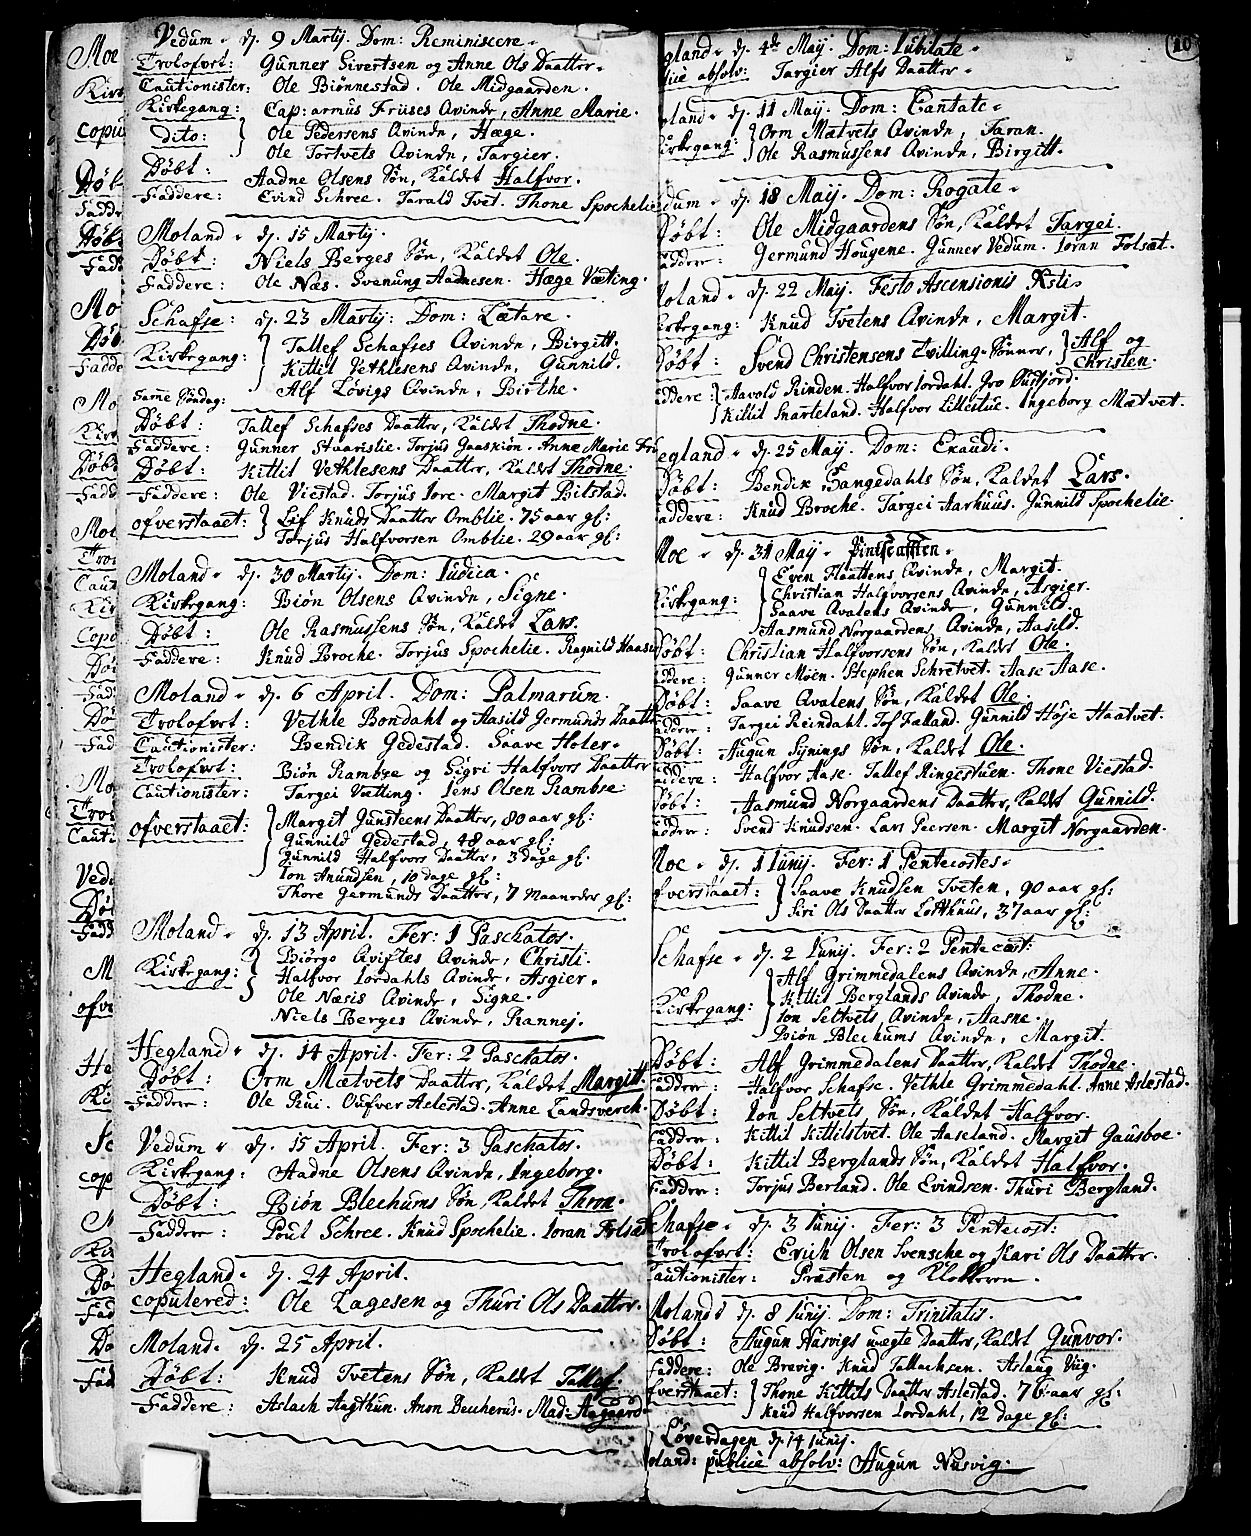 Vedum. d. 9 Martij. Dom: Reminiscere.
Trolofvet: Gunner Sivertsen og Anne Ols Daatter.
Cautionister: Ole Biønnestad. Ole Midgaarden.
Kirkegang: Cap: armus Friises Qvinde, Anne Marie.
dito: Ole Pedersens Qvinde, Hæge.
Ole Tortvets Qvinde, Targier.
Døbt: Aadne Olsens Søn, Kaldet Halfvor.
Faddere: Evind Schree. Tarald Tvet. Thone Spochelie
Moland. d. 15 Martij.
Døbt: Niels Berges Søn, Kaldet Ole.
Faddere: Ole Næs. Svenung Aadnesen. Hæge Væting.
Schafse: d. 23 Martij: Dom: Lætare.
Kirkegang: Tallef Schafses Qvinde, Birgitt.
Kittil Vethlesens Qvinde, Gunnild.
Alf Løvigs Qvinde, Birthe.
Samme Søndag:
Døbt: Tallef Schafses Daatter, Kaldet Thodne.
Faddere: Gunner Staarislie. Torjus Gaaskiøn. Anne Marie Fri
Døbt: Kittil Vethlesens Daatter, Kaldet Thodne.
Faddere: Ole Viestad. Torjus Lore. Margit Bilstad.
ofverstaaet: Lif Knuds Daatter Omblie. 75 aar gl:
Torjus Halfvorsen Omblie. 29 aar gl:
Moland. d. 30 Martij. Dom: Iudica.
Kirkegang: Biøn Olsens Qvinde, Signe.
Døbt: Ole Rasmussens Søn, Kaldet Lars.
Faddere: Knud Broche. Torjus Spochelie. Ragnild Haasi
Moland. d. 6 April. Dom: Palmarum.
Trolofvet: Vethle Bondahl og Aasild Germunds Daatter
Cautionister: Bendik Gedestad. Saave Holer.
Trolofvet: Biøn Rambse og Sigri Halfvors Daatter
Cautionister: Targei Vætting. Iens Olsen Rambse
ofverstaaet: Margit Gunsteens Daatter, 80 aar gl:
Gunnild Gedestad, 48 aar gl:
Gunnild Halfvors Daatter, 3 dage gl.
Ion Anundsen, 10 dage gl:
Thore Germunds Daatter, 7 Maaneder gl:
Moland. d. 13 April. Fer: 1 Paschatos.
Kirkegang: Biørgo Qvistes Qvinde, Christi.
Halfvor Iordahls Qvinde, Asgier.
Ole Næsis Qvinde, Signe.
Niels Berges Qvinde, Rannej.
Hegland. d. 14 April. Fer: 2 Paschatos.
Døbt: Orm Mætvets Daatter, Kaldet Margitt.
Faddere: Ole Rui. Oufver Aslestad. Anne Landsverch.
Vedum d. 15 April. Fer: 3 Paschatos.
Kirkegang: Aadne Olsens Qvinde, Ingeborg.
Døbt: Biøn Blechums Søn, Kaldet Thron.
Faddere: Poul Schree. Knud Spochelie. Ioran Folsæt
Hegland. d. 24 April.
copulered: Ole Lagesen og Thuri Ols Daatter.
Moland. d. 25 April.
Døbt: Knud Tvetens Søn, Kaldet Tallef.
Faddere: Aslach Aagthun. Anon Beucherus. Mad: Aagaard
10
gland. d. 4de Maij. Dom: Iubilate.
lice absolv: Targier Alfs Daatter.
oland. d. 11 Maij. Dom: Cantate.
irkegang: Orm Mætvets Qvinde, Taran.
Ole Rasmussens Qvinde, Birgitt.
dum. d. 18 Maij. Dom: Rogate.
Døbt: Ole Midgaardens Søn, Kaldet Targei.
addere: Germund Hougene. Gunner Vedum. Ioran Folsæt.
oland. d. 22 Maij. Festo Ascensionis Xsti.
irkegang: Knud Tvetens Qvinde, Margit.
Døbt: Svend Christensens Tvilling-Sønner, Alf og
Christen.
addere: Aavold Rinden. Halfvor Iordahl. Gro Østfjord.
Kittil Snarteland. Halfvor Littestue. Ingeborg Mætvet.
egland. d. 25 Maij. Dom: Exaudi.
Døbt: Bendix Bangedahls Søn, Kaldet Lars.
addere: Knud Broche. Targei Aarhuus. Gunnild Spochelie.
Moe. d. 31 Maij. Pintseafften.
Kirkegang: Even Flaattens Qvinde, Margit.
Christian Halfvorsens Qvinde, Asgier.
Saave Qvalens Qvinde, Gunnild.
Aasmund Norgaardens Qvinde, Aasild.
Døbt: Christian Halfvorsens Søn, Kaldet Ole.
addere: Gunner Moen. Stephen Schretvet. Aase Aase.
Døbt: Saave Qvalens Søn, Kaldet Ole.
addere: Targei Reindahl. Tof Falland. Gunnild Høje Haatvet.
Døbt: Augun Synings Søn, Kaldet Ole.
addere: Halfvor Aase. Tallef Ringestuen. Thone Viestad.
Døbt: Aasmund Norgaardens Daatter, Kaldet Gunnild.
addere: Svend Knudsen. Lars Peersen. Margit Norgaarden.
Moe. d. 1 Iunij. Fer: 1 Pentecostes.
fverstaaet: Saave Knudsen Tveten, 90 aar gl:
Siri Ols Daatter Lofthuus, 37 aar gl:
Schafse. d. 2 Iunij. Fer: 2 Pentecost:
Kirkegang: Alf Grimmedalens Qvinde, Anne.
Kittil Berglands Qvinde, Thodne.
Ion Seltvets Qvinde, Aasne.
Biøn Blechums Qvinde, Margit.
Døbt: Alf Grimmedalens Daatter, Kaldet Thodne.
addere: Halfvor Schafse. Vethle Grimmedahl. Anne Aslestad.
Døbt: Ion Seltvets Søn, Kaldet Halfvor.
Faddere: Kittil Kittilstvet. Ole Aaseland. Margit Gausboe.
Døbt: Kittil Berglands Søn, Kaldet Halfvor.
Faddere: Torjus Berland. Ole Evindsen. Thuri Bergland.
Schafse. d. 3 Iunij. Fer: 3 Pentecost:
Trolofvet: Erich Olsen Svensche og Kari Ols Daatter.
Cautionister: Præsten og Klokkeren.
Moland d. 8 Iunij. Dom: Trinitatis.
Døbt: Augun Nusvigs uægte Daatter, Kaldet Gunvor.
Faddere: Ole Brevig. Knud Tallachsen. Aslaug Viig.
fverstaaet: Thone Kittils Daatter Aslestad. 76 aar gl:
Knud Halfvorsen Iordahl, 12 dage gl:
Løverdagen d. 14 Iunij.
oland: publice absolv: Augun Nusvig.